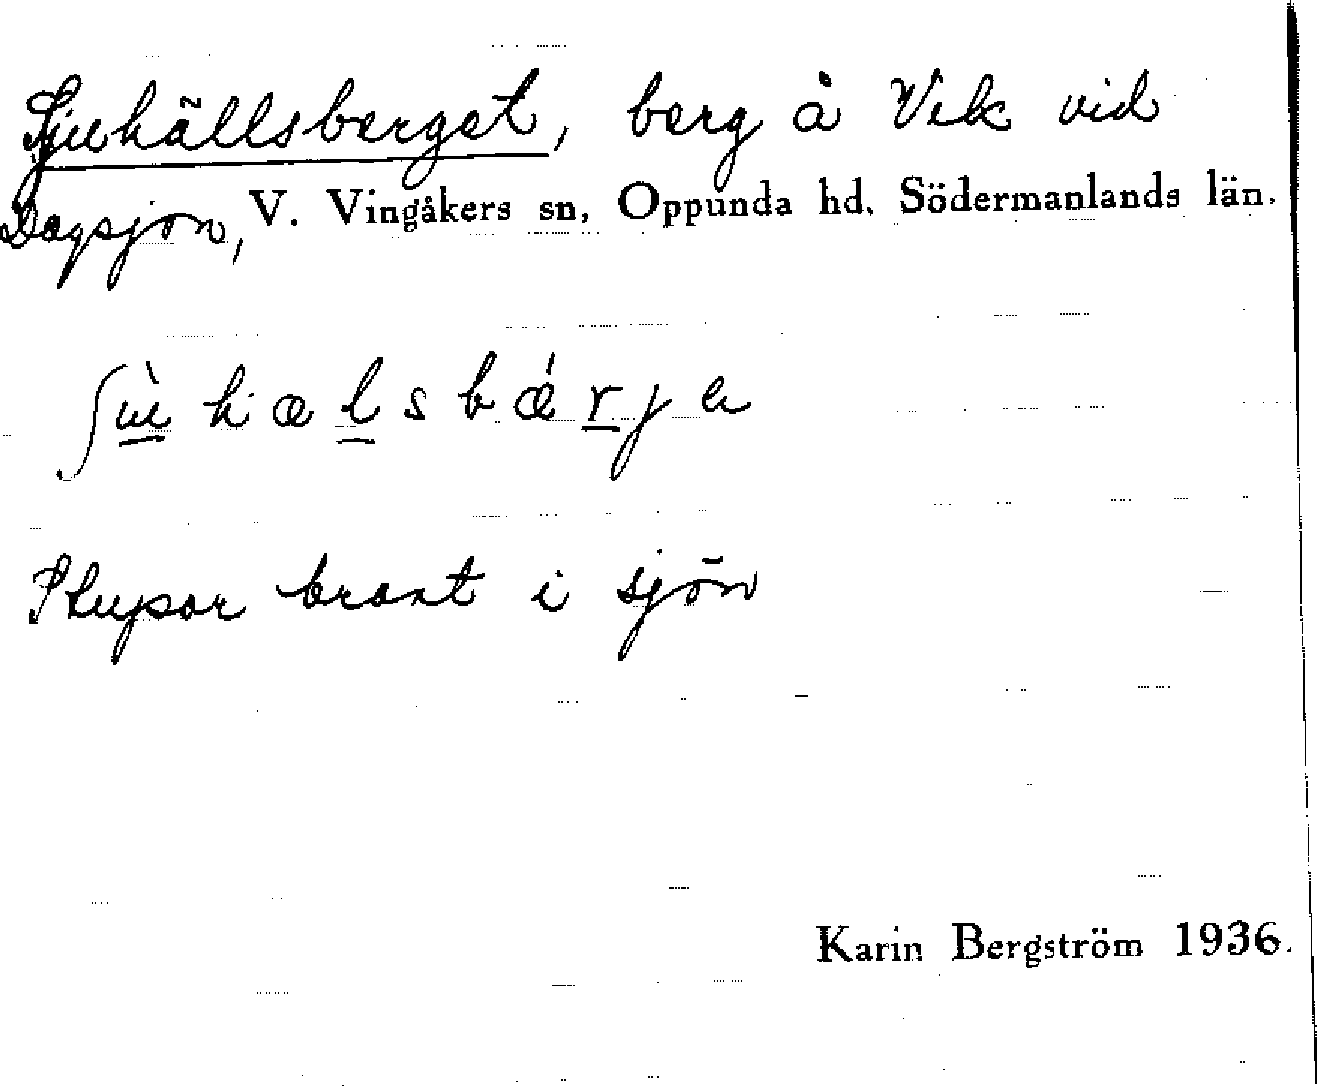 Sjuhällsberget, berg å Vik vid
Dagsjön, V. Vingåkers sn, Oppunda hd. Södermanlands län.
ʃù̲hæl̲sbǽr̲ja
Stupar brant i sjön
Karin Bergström 1936.